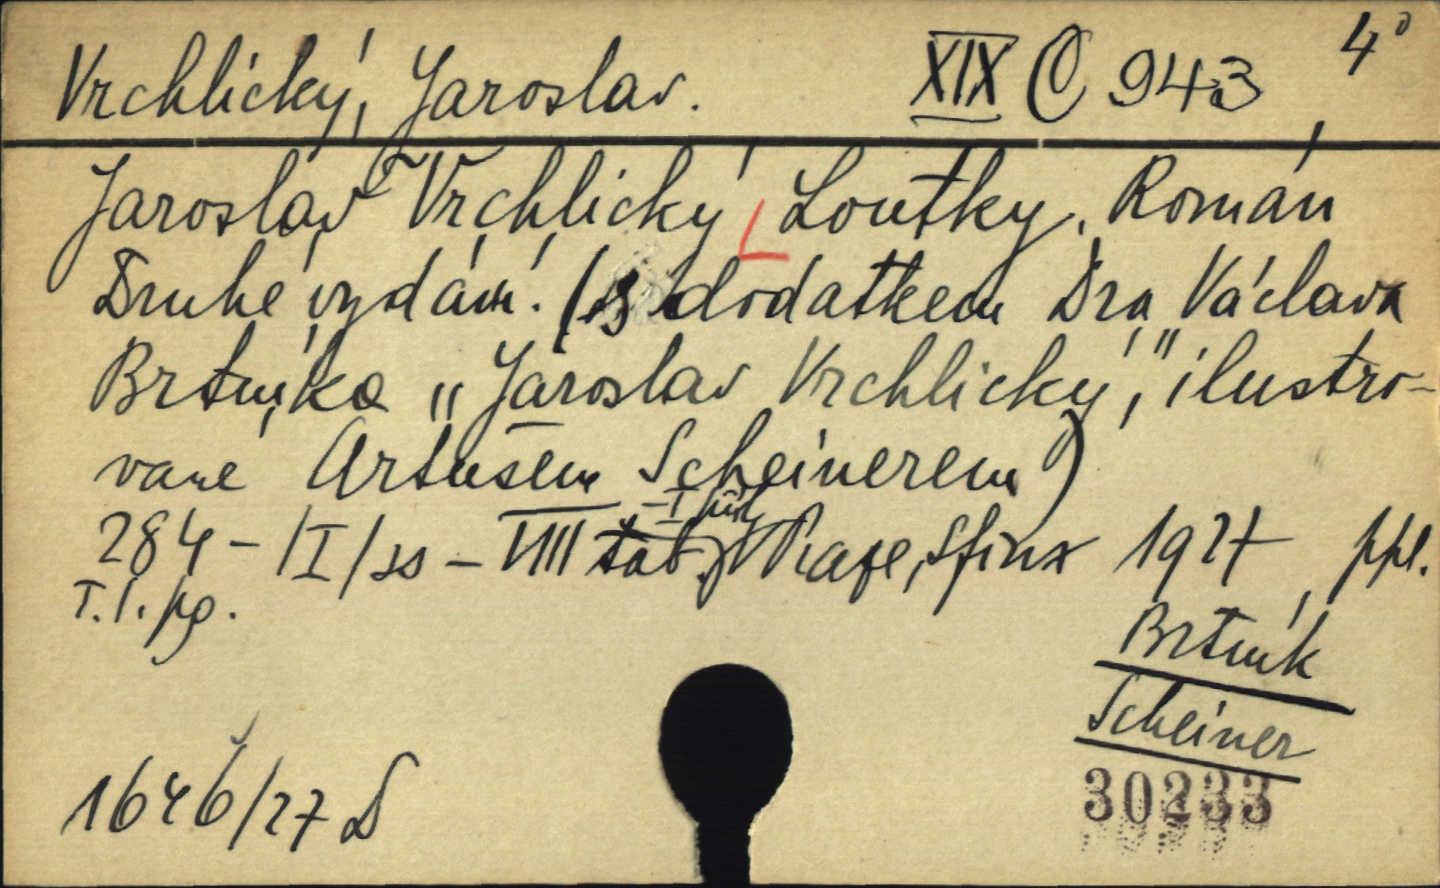 Vrchlický, Jaroslav. XIX C 943, 4°
Jaroslav Vrchlický Loutky. Román
Druhé vydání. (s dodatkem Dra Václava
Brtníka „Jaroslav Vrchlický," ilustro-
vané Artušem Scheinerem)
284 - /I/ ss - VIII tab. Praze, Sfinx 1927 ppl.
T. I. pg.
Brtník
Scheiner
30233
1646/27 D